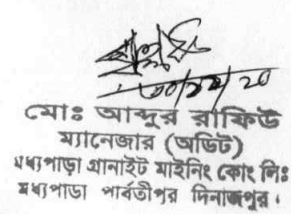 ৩০/১২/২০
মোঃ আব্দুর রাফিউ
ম্যানেজার (অডিট)
মধ্যপাড়া গ্রানাইট মাইনিং কোং লিঃ
মধ্যপাড়া পার্বতীপুর দিনাজপুর।